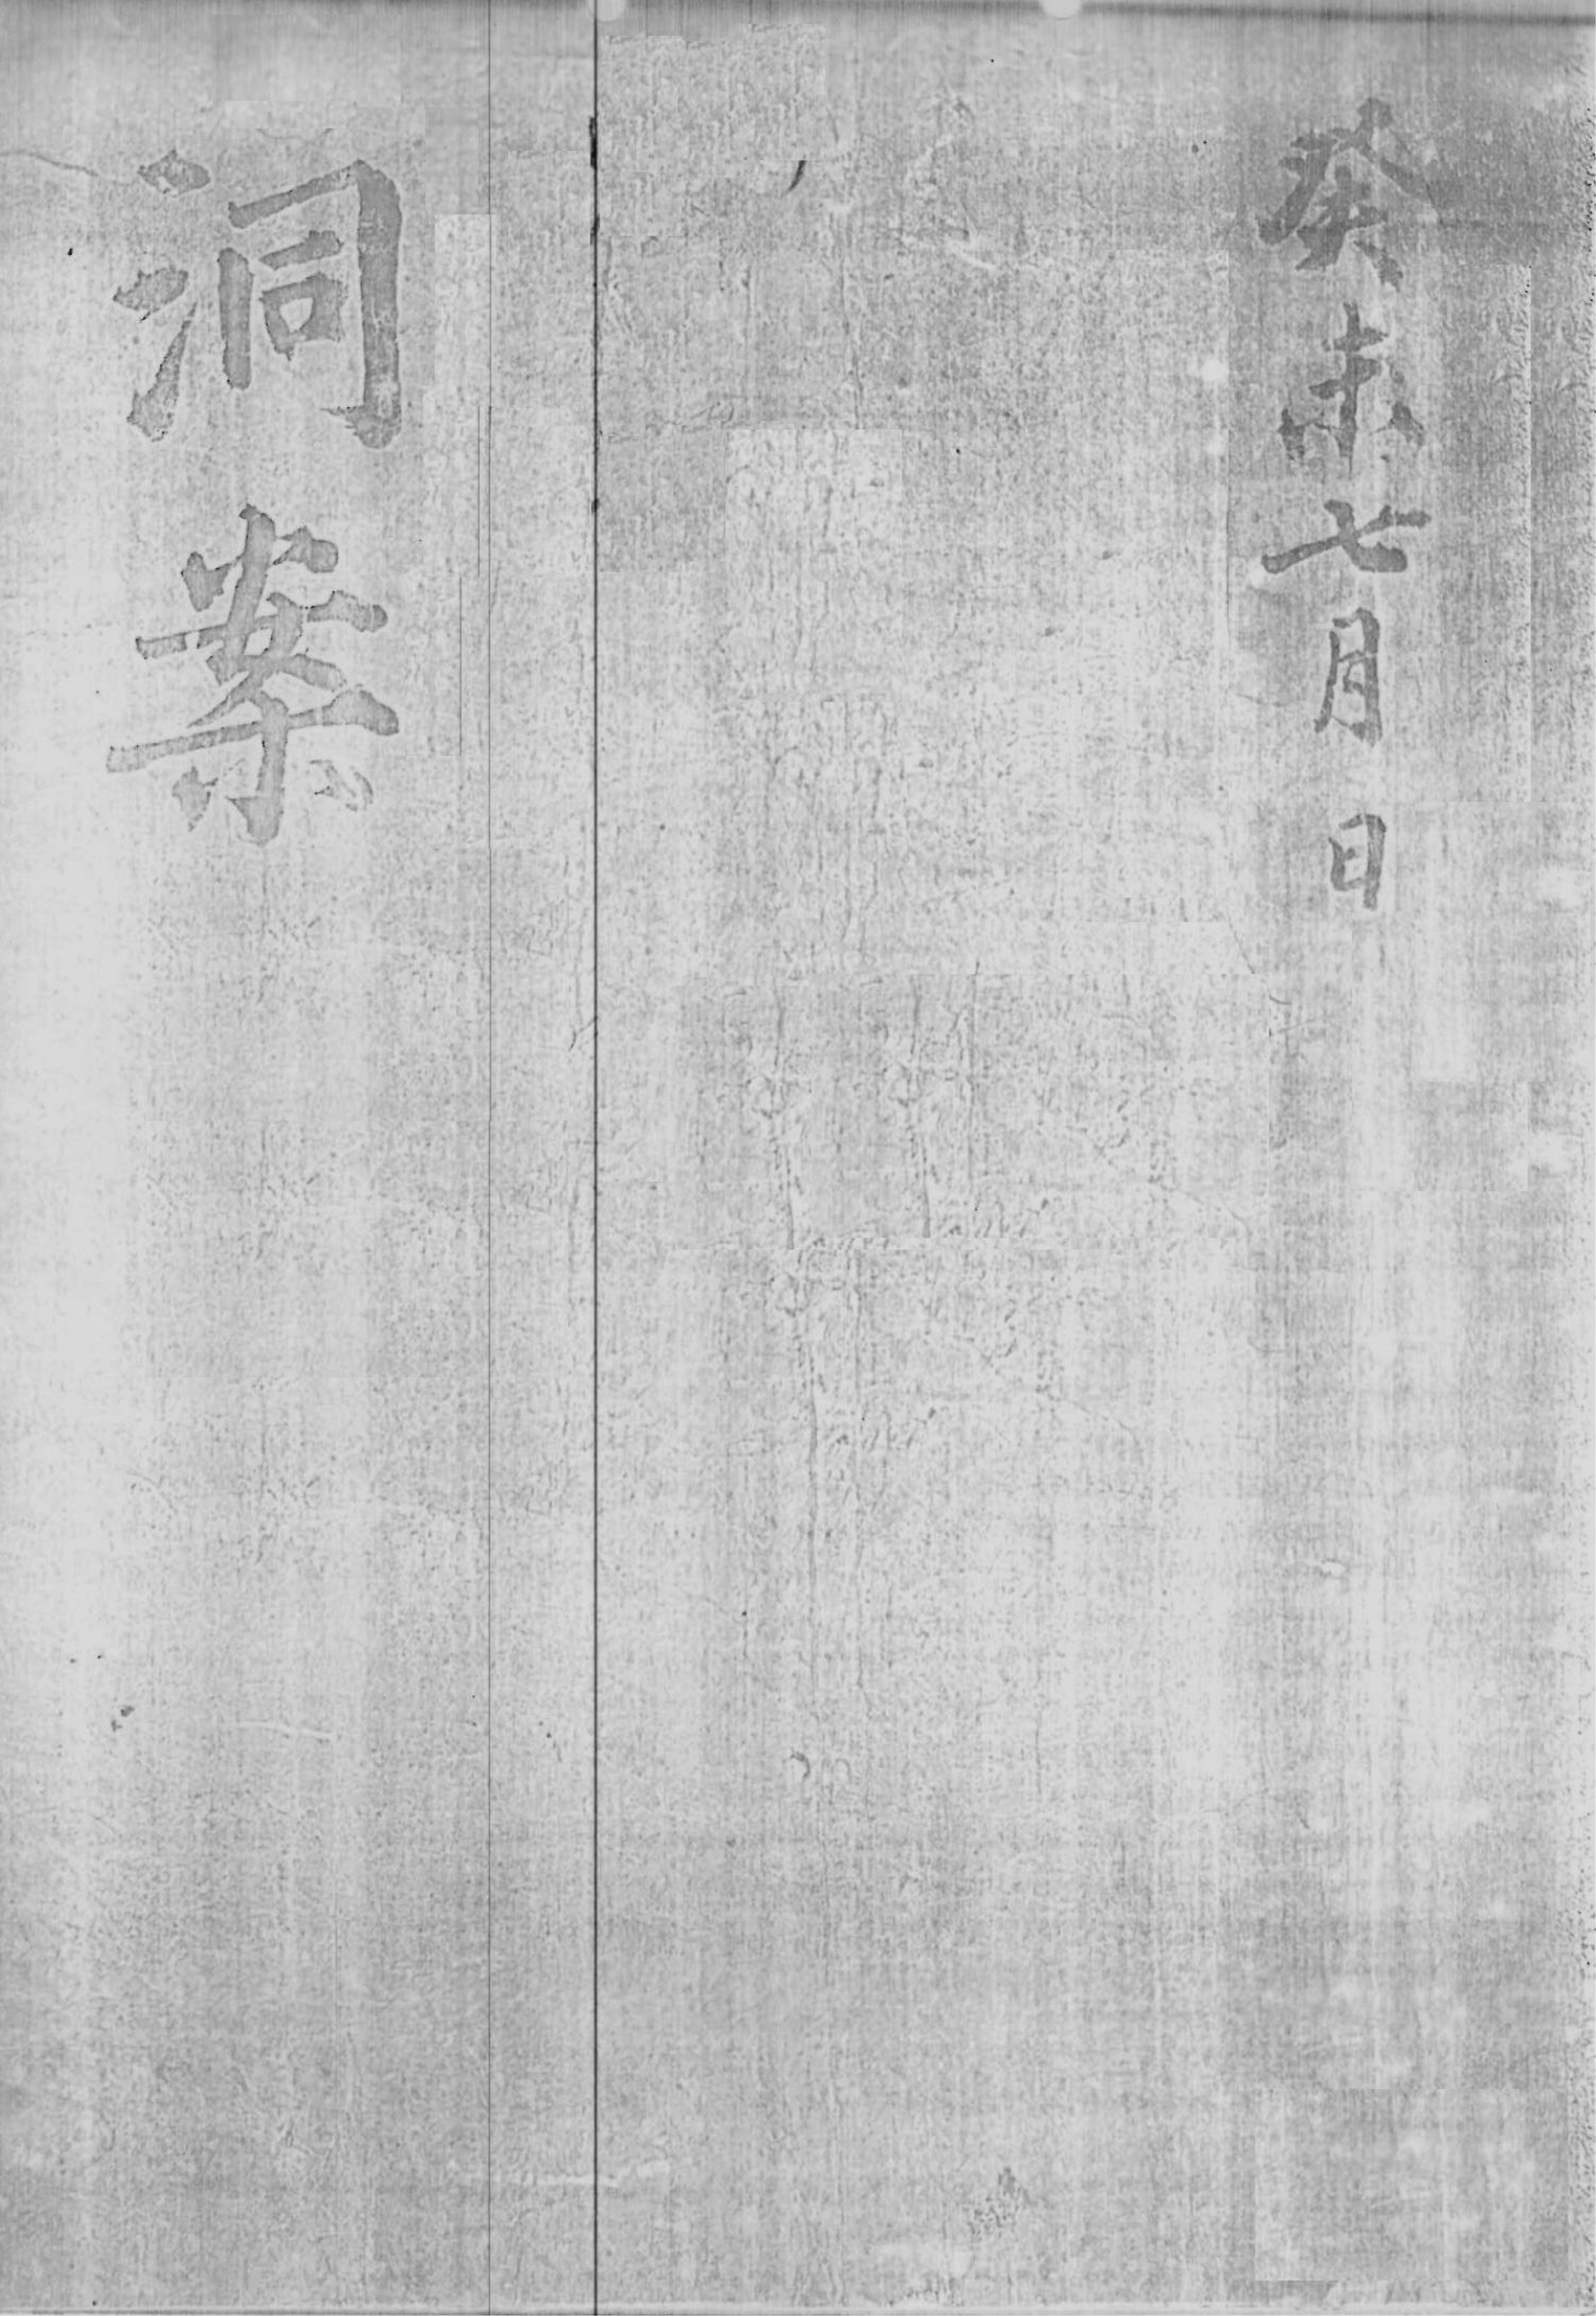 癸未七月日
洞案